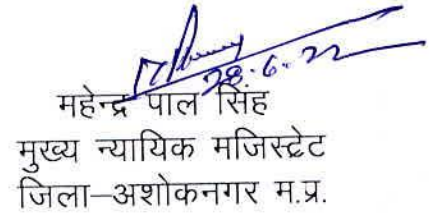 28.6.22
महेन्द्र पाल सिंह
मुख्य न्यायिक मजिस्ट्रेट
जिला–अशोकनगर म.प्र.